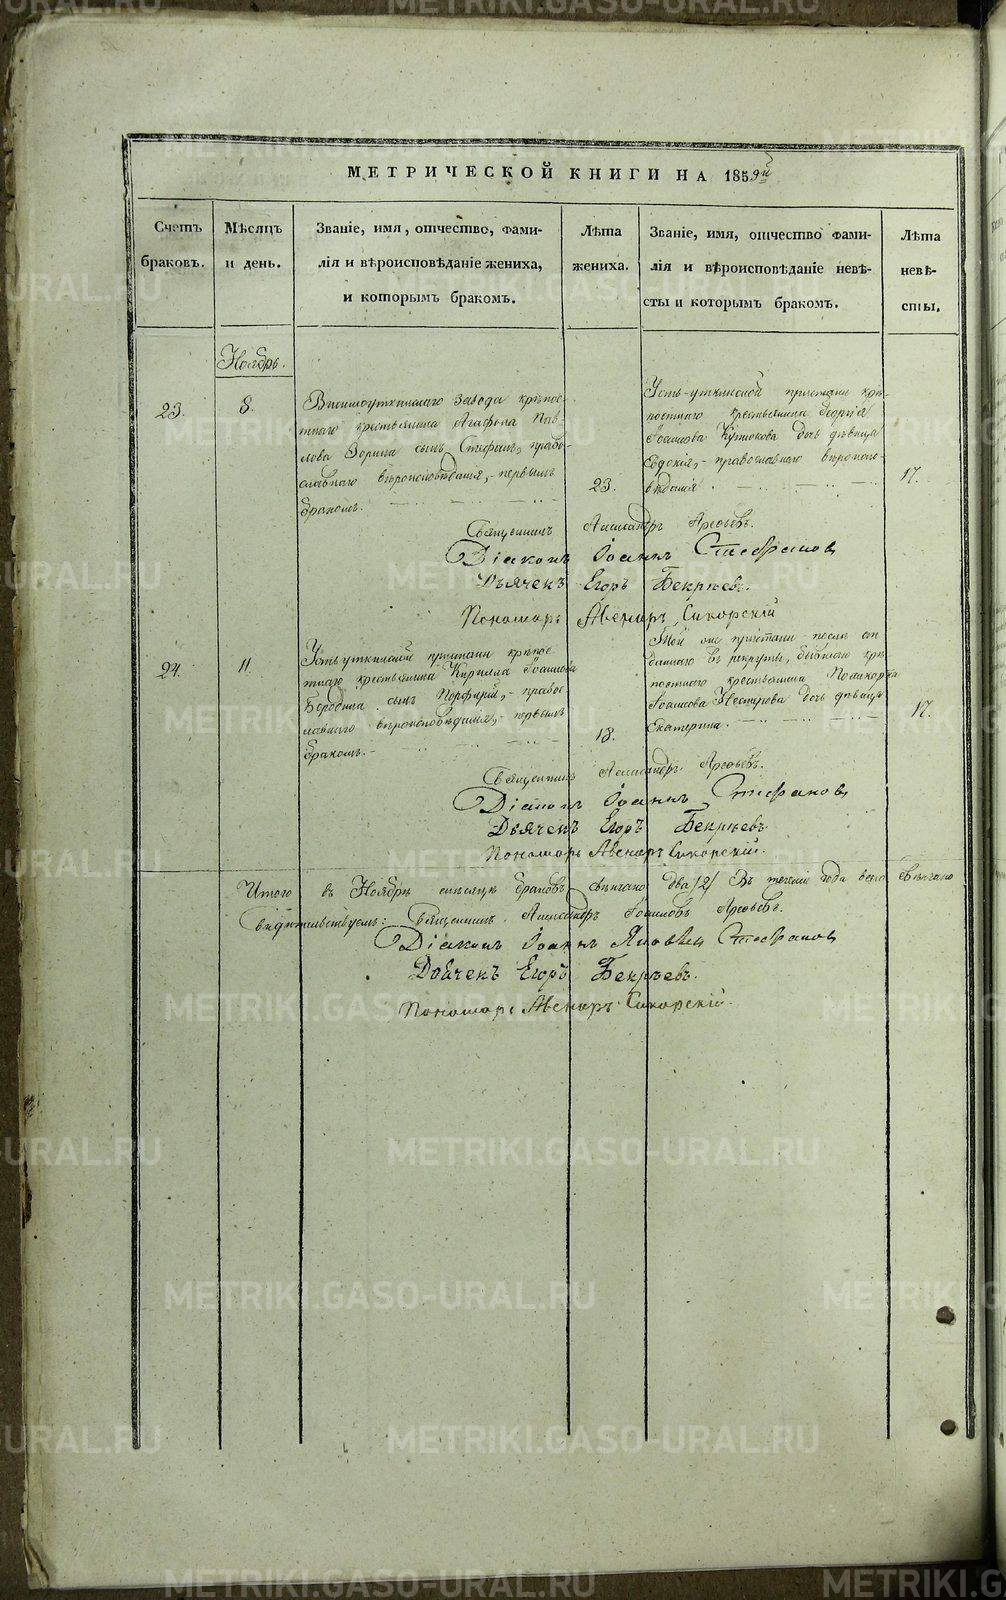 МЕТРИЧЕСКОЙ КНИГИ НА 1859й
Счетъ браковъ.
Мѣсяцъ и день.
Званіе, имя, отчество, фами-
лія и вѣроисповѣданіе жениха,
и которымъ бракомъ.
Лѣта жениха.
Званіе, имя, отчество фами-
лія и вѣроисповѣданіе невѣ-
сты и которымъ бракомъ.
Лѣта невѣ-
сты.
Ноябрь.
23.
8.
Висимоуткинскаго завода крѣпос-
тнаго крестьянина Агафона Пав-
лова Зорина сынъ Стефанъ, право-
славнаго вѣроисповѣданія, первымъ
бракомъ.
23.
Усть-уткинской пристани крѣ-
постнаго крестьянина Георгія
Іоаннова дочь дѣвица
Евдокія, православнаго вѣроиспо-
вѣданія
17.
Священникъ Александръ Арефьевъ.
Діаконъ Іоаннъ Стефановъ
Дьячекъ Егоръ Бекрѣевъ.
Пономарь Авениръ Сикорскій
24.
11.
Усть уткинской пристани крѣпос-
тнаго крестьянина Кирилла Іоаннова
Бородина сынъ Порфирій, правос-
лавнаго вѣроисповѣданія, первымъ
бракомъ.
18.
Той же пристани послѣ от-
даннаго въ рекруты, бывшаго крѣ-
постнаго крестьянина Поликарпа
Іоаннова Нестерова дочь дѣвица
Екатерина.
17.
Священникъ Александръ Арефьевъ.
Діаконъ Іоаннъ Стефановъ
Дьячекъ Егоръ Бекрѣевъ
Пономарь Авениръ Сикорскій.
Итого въ Ноябрѣ мѣсяцѣ браковъ вѣнчано два /2/ Въ теченіи года всего вѣнчано
видѣтельствуемъ: Священникъ Александръ Іоанновъ Арефьевъ.
Діаконъ Іоаннъ Яковлев Стефановъ
Дьячекъ Егоръ Бекрѣевъ.
Пономарь Авениръ Сикорскій.
METRIKI.GASO-URAL.RU